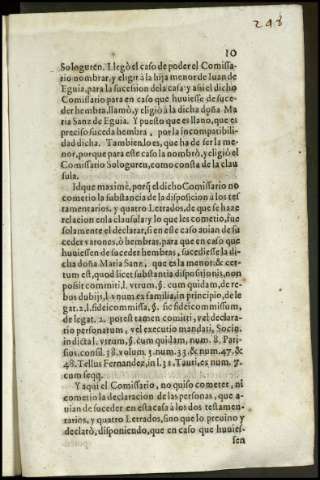 298
10
Sologuren. Llegò el caso de poder el Comissa-
rio nombrar, y eligir à la hija menor de Iuan de
Eguia, para la sucession de la casa y assi el dicho
Comissario para en caso que huuiesse de suce-
der hembra, llamò, y eligiò à la dicha doña Ma
ria Sanz de Eguia. Y puesto que es llano, que es
preciso suceda hembra, por la incompatibili-
dad dicha. Tambien lo es, que ha de ser la me-
nor, porque para este caso la nombrò, y eligiò el
Comissario Sologuren, como consta de la clau
sula.
Idque maximè, porq̃ el dicho Comissario no
cometio la substancia de la disposicion à los tes
tamentarios, y quatro Letrados, de que se haze
relacion en la clausula: y lo que les cometio, fue
solamente el declarar, si en este caso auian de su
ceder varones, ò hembras, para que en caso que
huuiessen de suceder hembras, sucediesse la di-
cha doña Maria Sanz, que es la menor & cer-
tum est, quod licet substantia dispositionis, non
possit committi, l. vtrum, §. cum quidam, de re-
bus dubijs, l. vnum ex familia, in principio, de le
gat. 2. l. fideicommissa, §. sic fideicommissum,
de legat. 2. potest tamen comitti, vel declara-
tio personarum, vel executio mandati, Socin.
in dicta l. vtrum, §. cum quidam, num. 8. Pari-
sius. consil. 38. volum. 3. num. 33. & num. 47. &
48. Tellus Fernandez, in l. 31. Tauri, ex num. 7.
cum seqq.
Y aqui el Comissario, no quiso cometer, ni
cometio la declaracion de las personas, que a-
uian de suceder en esta casa à los dos testamen-
tarios, y quatro Letrados, sino que lo preuino y
declarò, disponiendo, que en caso que huuies-
sen